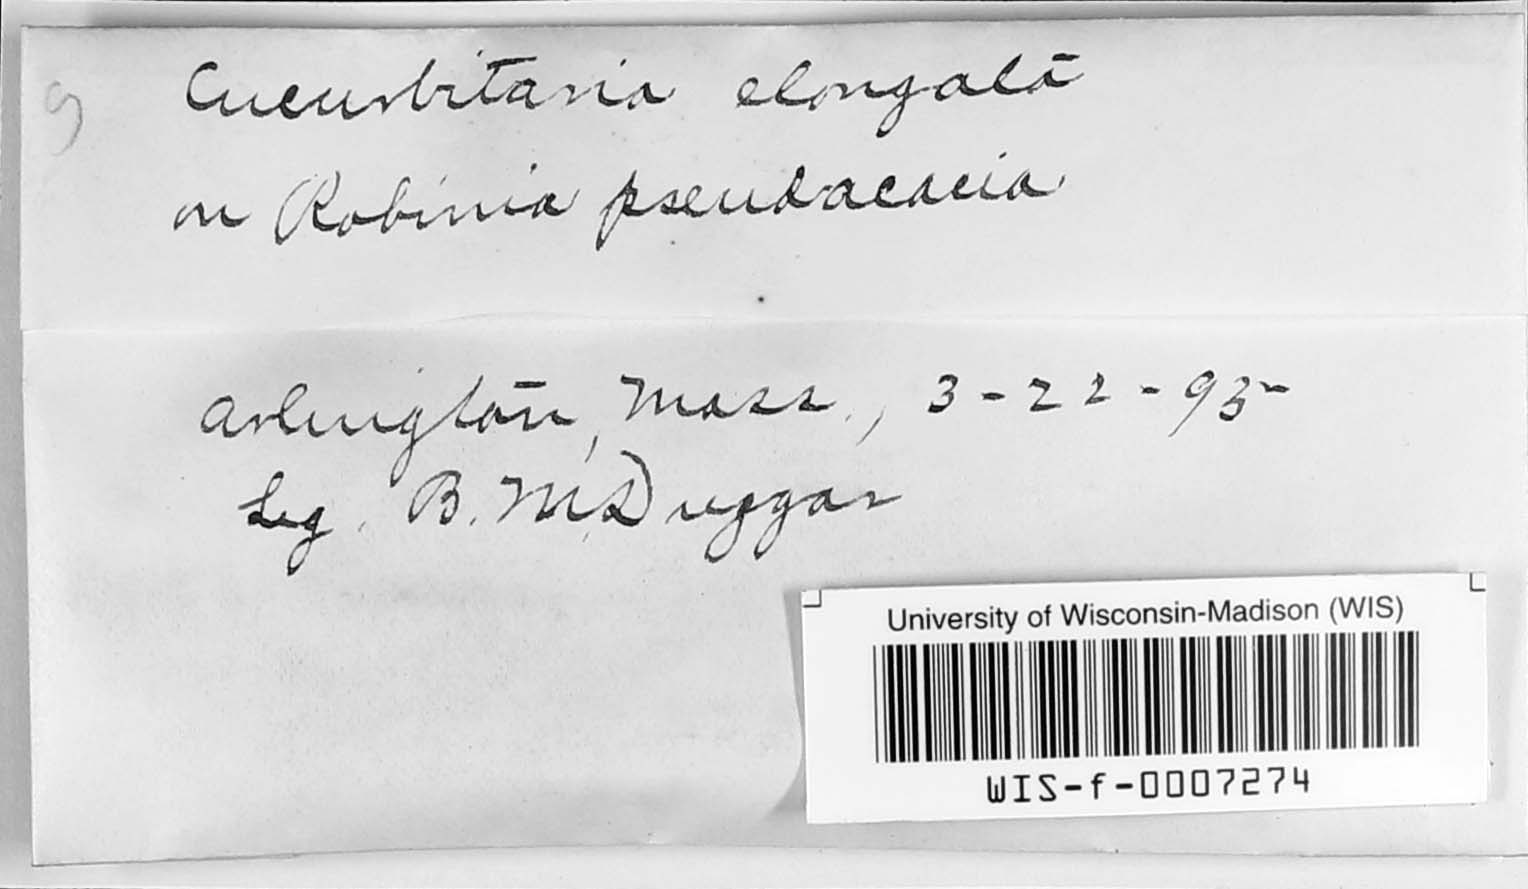 9
Cucurbitaria elongata
on Robinia pseudacacia
Arlington, Mass., 3-22-95
Leg. B. M. Duggar
University of Wisconsin-Madison (WIS)
WIS-f-0007274